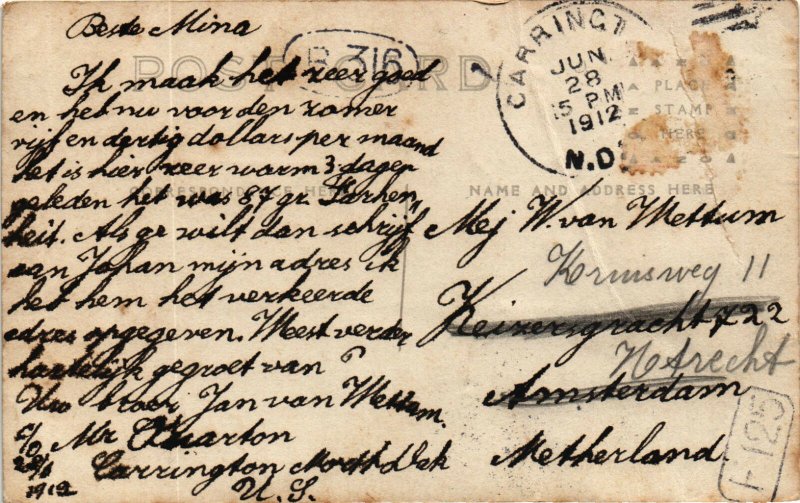 Beste Mina
Ik maak het zeer goed
en heb nu voor den zomer
vijf en dertig dollars per maand
het is hier zeer warm 3 dagen
geleden het was 87 gr. Farhen,,
heit. Als ge wilt dan schrijf
aan Johan mijn adres ik
het hem het verkeerde
adres opgegeven. Weest verder
hartelijk gegroet van
Uw broer Jan van Wettum.
c/o Mr Wharton
1912 Carrington North Dak
U. S.
POST CARD
R 316
CARRINGT
JUN
28
5 PM
1912
N.D.
PLACE
STAMP
HERE
CORRESPONDENCE HERE
NAME AND ADDRESS HERE
Mej W. van Wettum
Kruisweg 11
Keizersgracht 722
Utrecht
Amsterdam
Netherland.
F 125